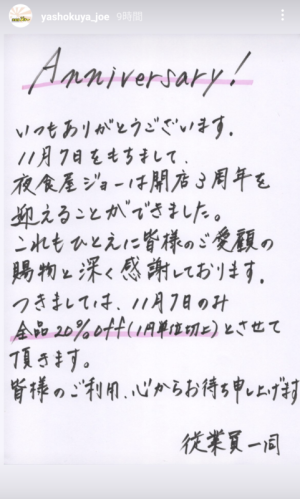 yashokuya_joe 9時間
Anniversary!
いつもありがとうございます.
11月7日をもちまして、
夜食屋ジョーは開店3周年を
迎えることができました。
これもひとえに皆様のご愛顧の
賜物と深く感謝しております.
つきましては、11月7日のみ
全品20%off(1円単位切上)とさせて
頂きます。
皆様のご利用、心からお待ち申し上げます
従業員一同